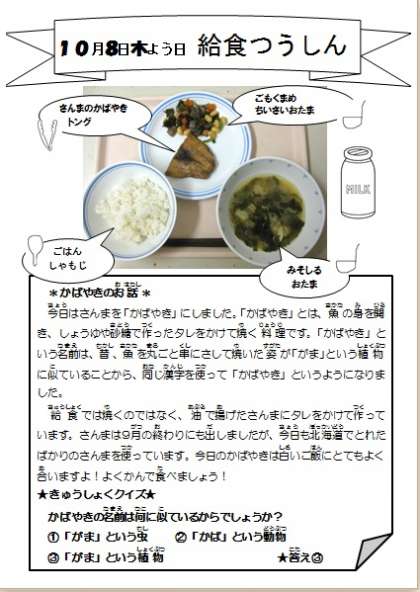 10月8日木よう日 給食つうしん
さんまのかばやき
トング
ごもくまめ
ちいさいおたま
MILK
ごはん
しゃもじ
みそしる
おたま
＊かばやきのお話＊
今日はさんまを「かばやき」にしました。「かばやき」とは、魚の身を開
き、しょうゆや砂糖で作ったタレをかけて焼く料理です。「かばやき」と
いう名前は、昔、魚を丸ごと串にさして焼いた姿が「がま」という植物
に似ていることから、同じ漢字を使って「かばやき」というようになりま
した。
給食では焼くのではなく、油で揚げたさんまにタレをかけて作って
います。さんまは9月の終わりにも出しましたが、今日も北海道でとれた
ばかりのさんまを使っています。今日のかばやきは白いご飯にとてもよく
合いますよ！よくかんで食べましょう！
★きゅうしょくクイズ★
かばやきの名前は何に似ているからでしょうか？
①「がま」という虫 ②「かば」という動物
③「がま」という植物 ★答え③